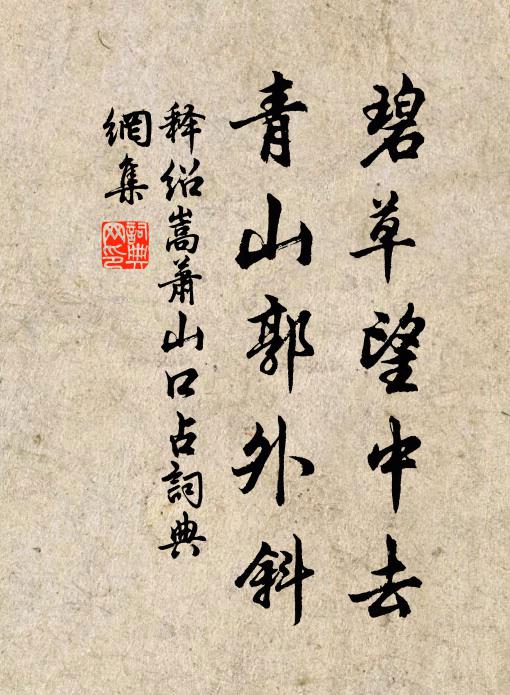 碧草望中去
青山郭外斜
释绍嵩萧山口占詞典
網集
詞典网印